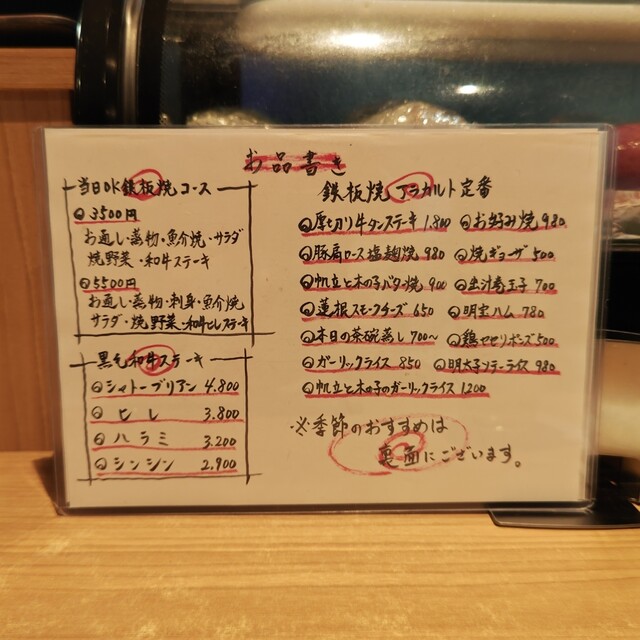 お品書き
当日OK鉄板焼コース
3500円
お通し・蒸物・魚介焼・サラダ
焼野菜・和牛ステーキ
5500円
お通し・蒸物・刺身・魚介焼
サラダ・焼野菜・和牛ヒレステーキ
黒毛和牛ステーキ
シャトーブリアン 4.800
ヒレ 3.800
ハラミ 3.200
シンシン 2.900
鉄板焼 アラカルト定番
厚切り牛タンステーキ 1.800
お好み焼 980
豚肩ロース塩麹焼 980
焼ギョーザ 500
帆立と木の子バター焼 900
出汁巻玉子 700
蓮根スモークチーズ 650
明宝ハム 780
本日の茶碗蒸し 700〜
鶏セセリポーズ500
ガーリックライス 850
明太子ソテーライス 980
帆立と木の子のガーリックライス 1200
※季節のおすすめは
裏面にございます。